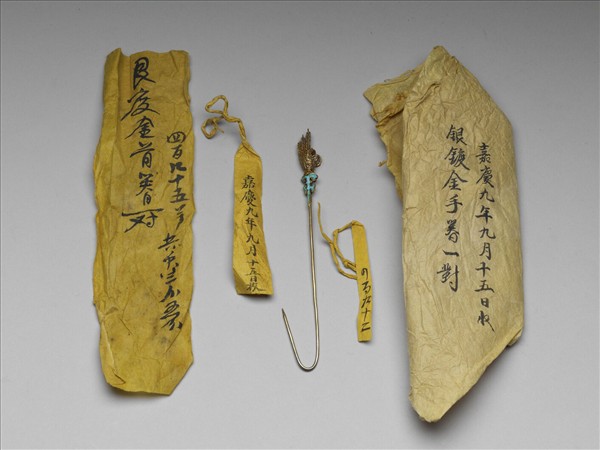 嘉慶九年九月十五日收
銀鍍金手一對
四百九十二
嘉慶九年九月十五日收
四百九十五号 共重三
艮度金首一对